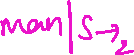 man|s→2